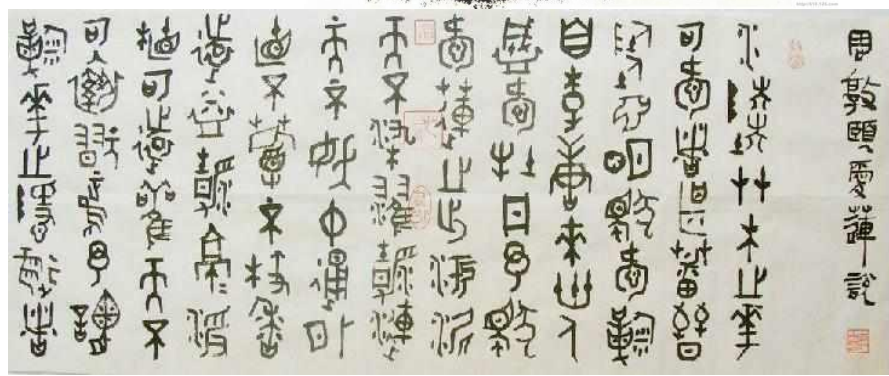 周敦頤愛蓮說
水陸艸木之華
可愛者甚蕃晉
陶淵明獨愛菊
自李唐來世人
盛愛牡丹予獨
愛蓮之出淤泥
而不染濯清漣
而不妖中通外
直不蔓不枝香
遠益清亭淨
植可遠觀而不
可褻翫焉予謂
菊華之隱逸